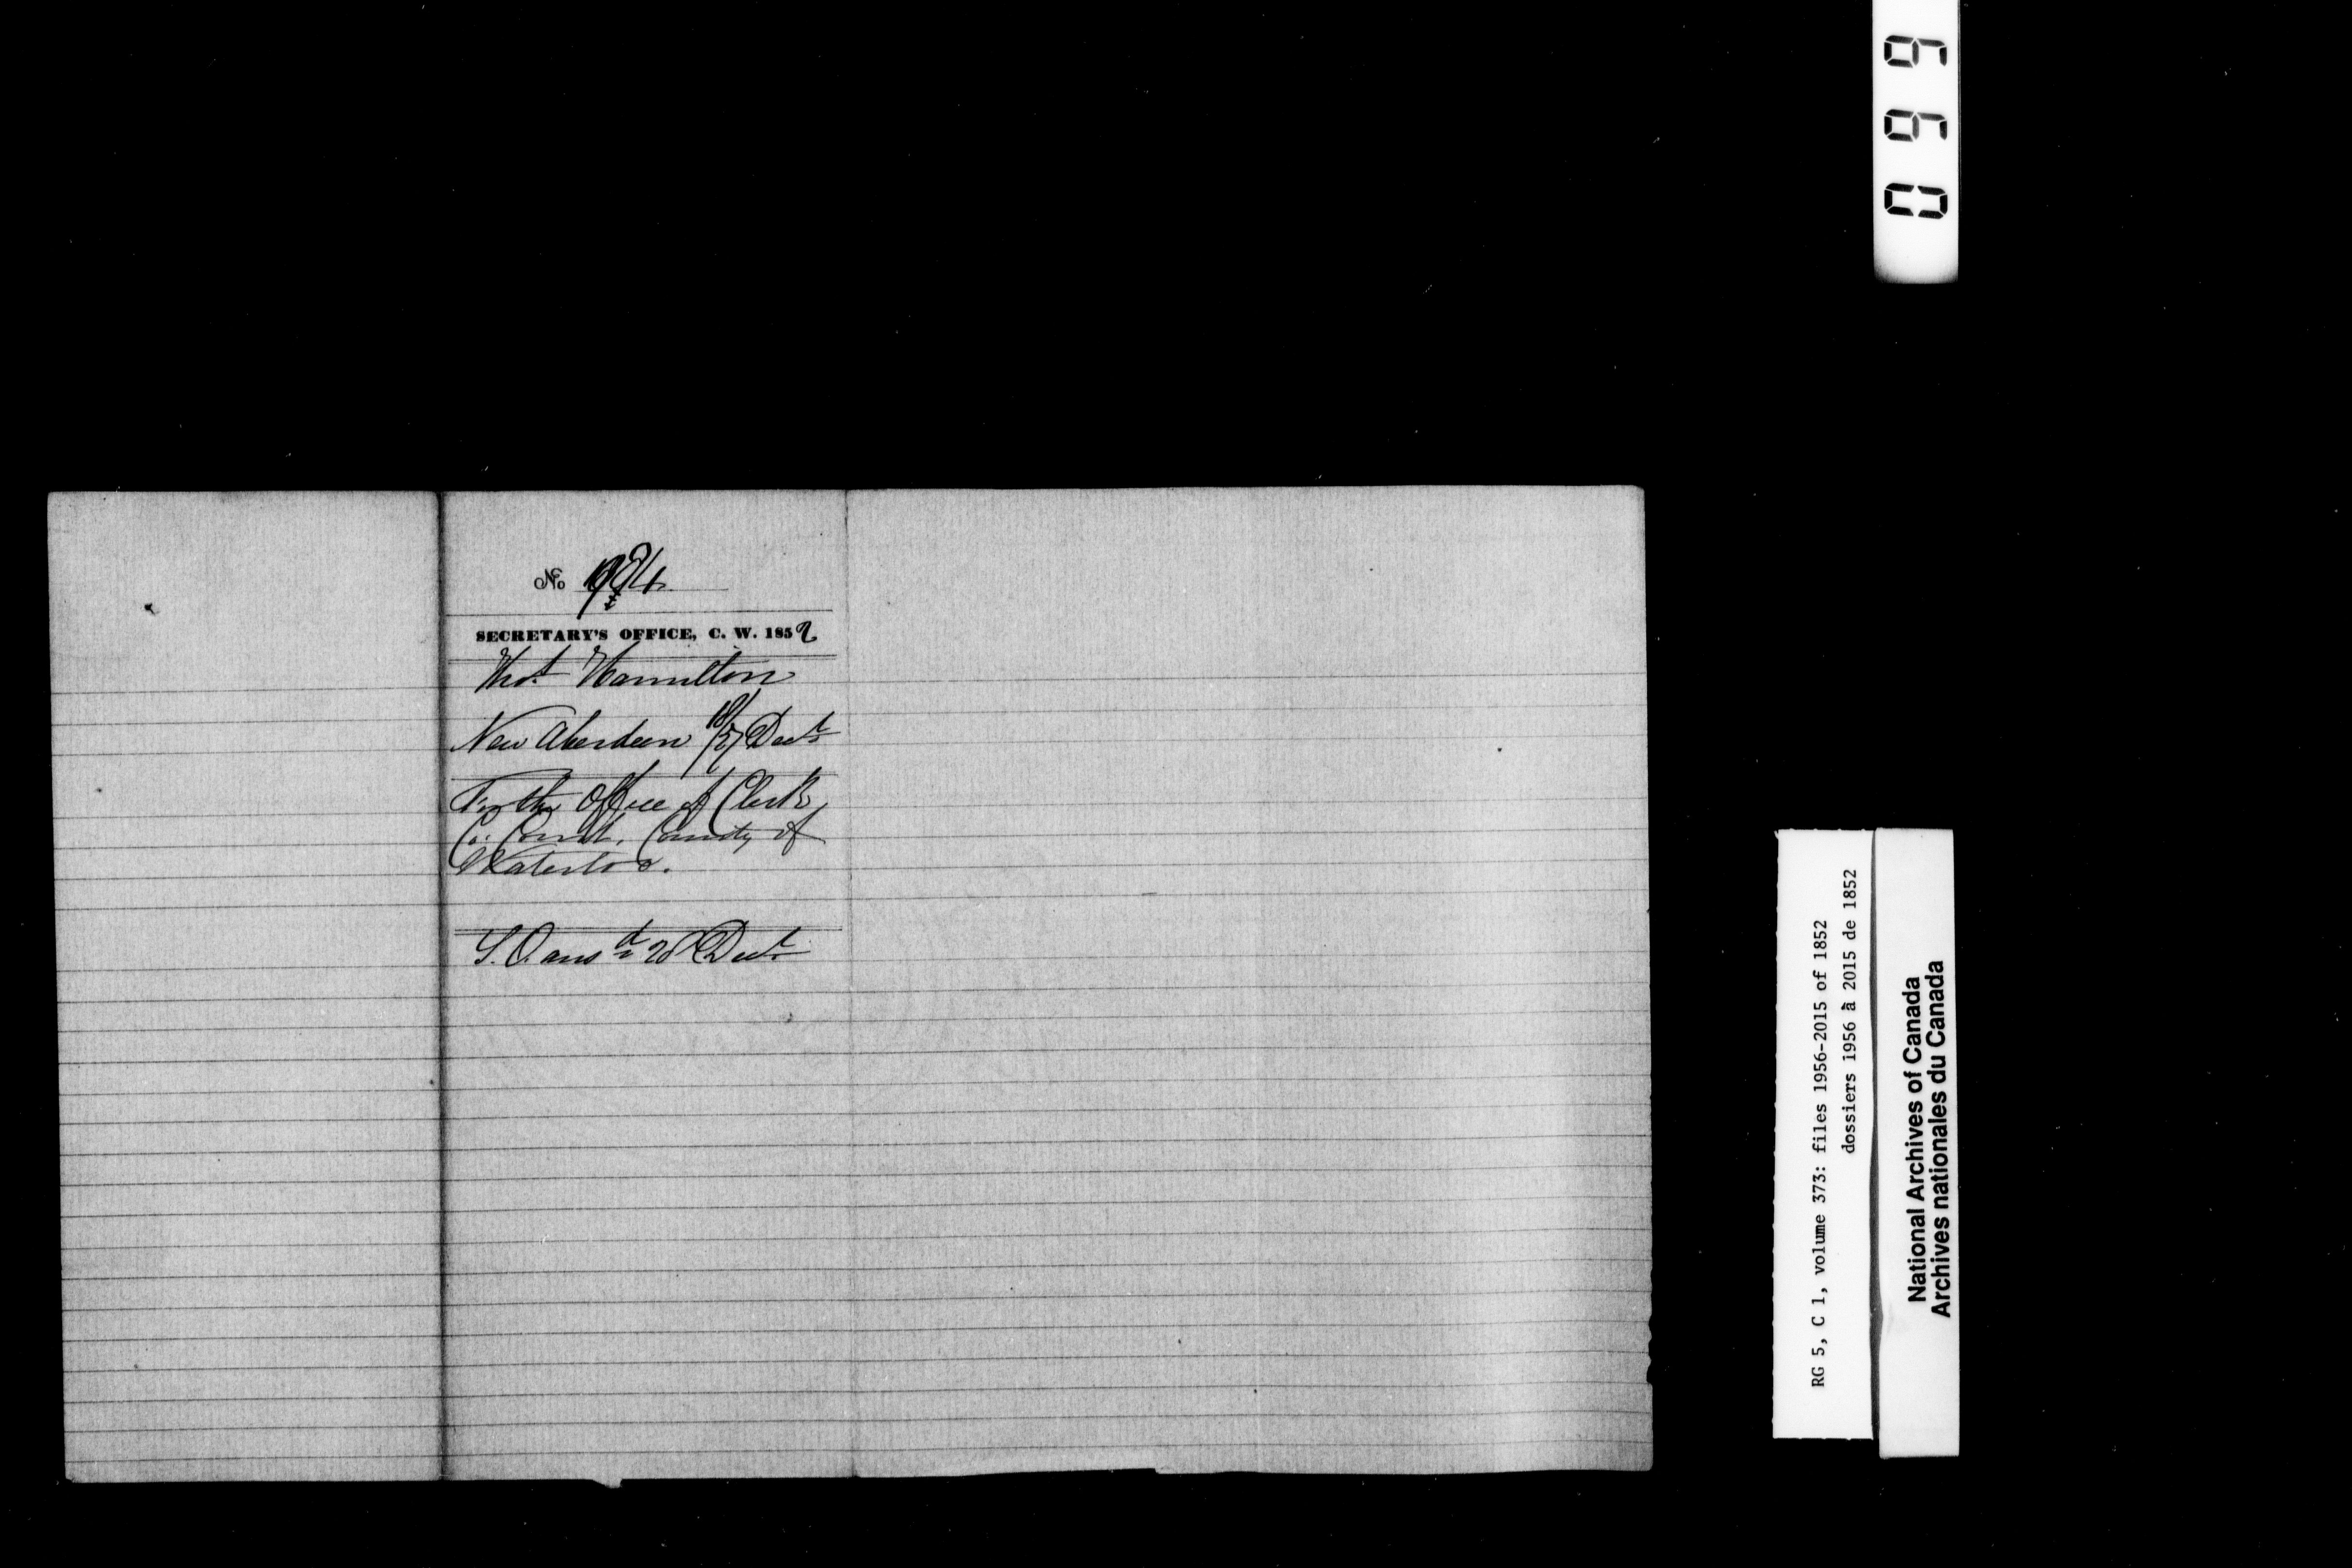 No 1984
SECRETARY'S OFFICE, C. W. 1852
Thos Hamilton
New Aberdeen 18/27 Decr
For the Office of Clerk
Co: Court, County of
Waterloo.
S. O. ansd 28 Decr
0 6 6
RG 5, C 1, volume 373: files 1956-2015 of 1852
dossiers 1956 à 2015 de 1852
National Archives of Canada
Archives nationales du Canada